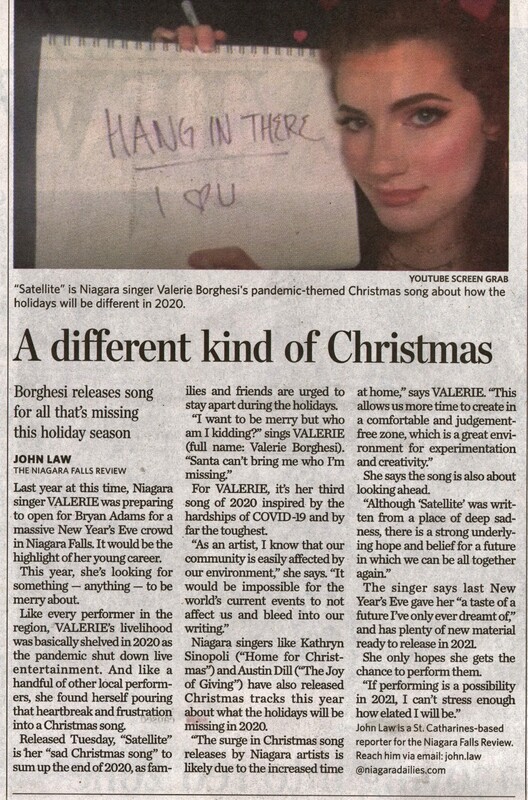 HANG IN THERE
I ♡ U
YOUTUBE SCREEN GRAB
"Satellite" is Niagara singer Valerie Borghesi's pandemic-themed Christmas song about how the
holidays will be different in 2020.
A different kind of Christmas
Borghesi releases song
for all that's missing
this holiday season
JOHN LAW
THE NIAGARA FALLS REVIEW
Last year at this time, Niagara
singer VALERIE was preparing
to open for Bryan Adams for a
massive New Year's Eve crowd
in Niagara Falls. It would be the
highlight of her young career.
This year, she's looking for
something — anything — to be
merry about.
Like every performer in the
region, VALERIE's livelihood
was basically shelved in 2020 as
the pandemic shut down live
entertainment. And like a
handful of other local perform-
ers, she found herself pouring
that heartbreak and frustration
into a Christmas song.
Released Tuesday, "Satellite"
is her "sad Christmas song" to
sum up the end of 2020, as fam-
ilies and friends are urged to
stay apart during the holidays.
"I want to be merry but who
am I kidding?" sings VALERIE
(full name: Valerie Borghesi).
"Santa can't bring me who I'm
missing."
For VALERIE, it's her third
song of 2020 inspired by the
hardships of COVID-19 and by
far the toughest.
"As an artist, I know that our
community is easily affected by
our environment," she says. "It
would be impossible for the
world's current events to not
affect us and bleed into our
writing."
Niagara singers like Kathryn
Sinopoli ("Home for Christ-
mas") and Austin Dill ("The Joy
of Giving") have also released
Christmas tracks this year
about what the holidays will be
missing in 2020.
"The surge in Christmas song
releases by Niagara artists is
likely due to the increased time
at home," says VALERIE. "This
allows us more time to create in
a comfortable and judgement-
free zone, which is a great envi-
ronment for experimentation
and creativity."
She says the song is also about
looking ahead.
"Although 'Satellite' was writ-
ten from a place of deep sad-
ness, there is a strong underly-
ing hope and belief for a future
in which we can be all together
again."
The singer says last New
Year's Eve gave her "a taste of a
future I've only ever dreamt of,"
and has plenty of new material
ready to release in 2021.
She only hopes she gets the
chance to perform them.
"If performing is a possibility
in 2021, I can't stress enough
how elated I will be."
John Law is a St. Catharines-based
reporter for the Niagara Falls Review.
Reach him via email: john.law
@niagaradailies.com